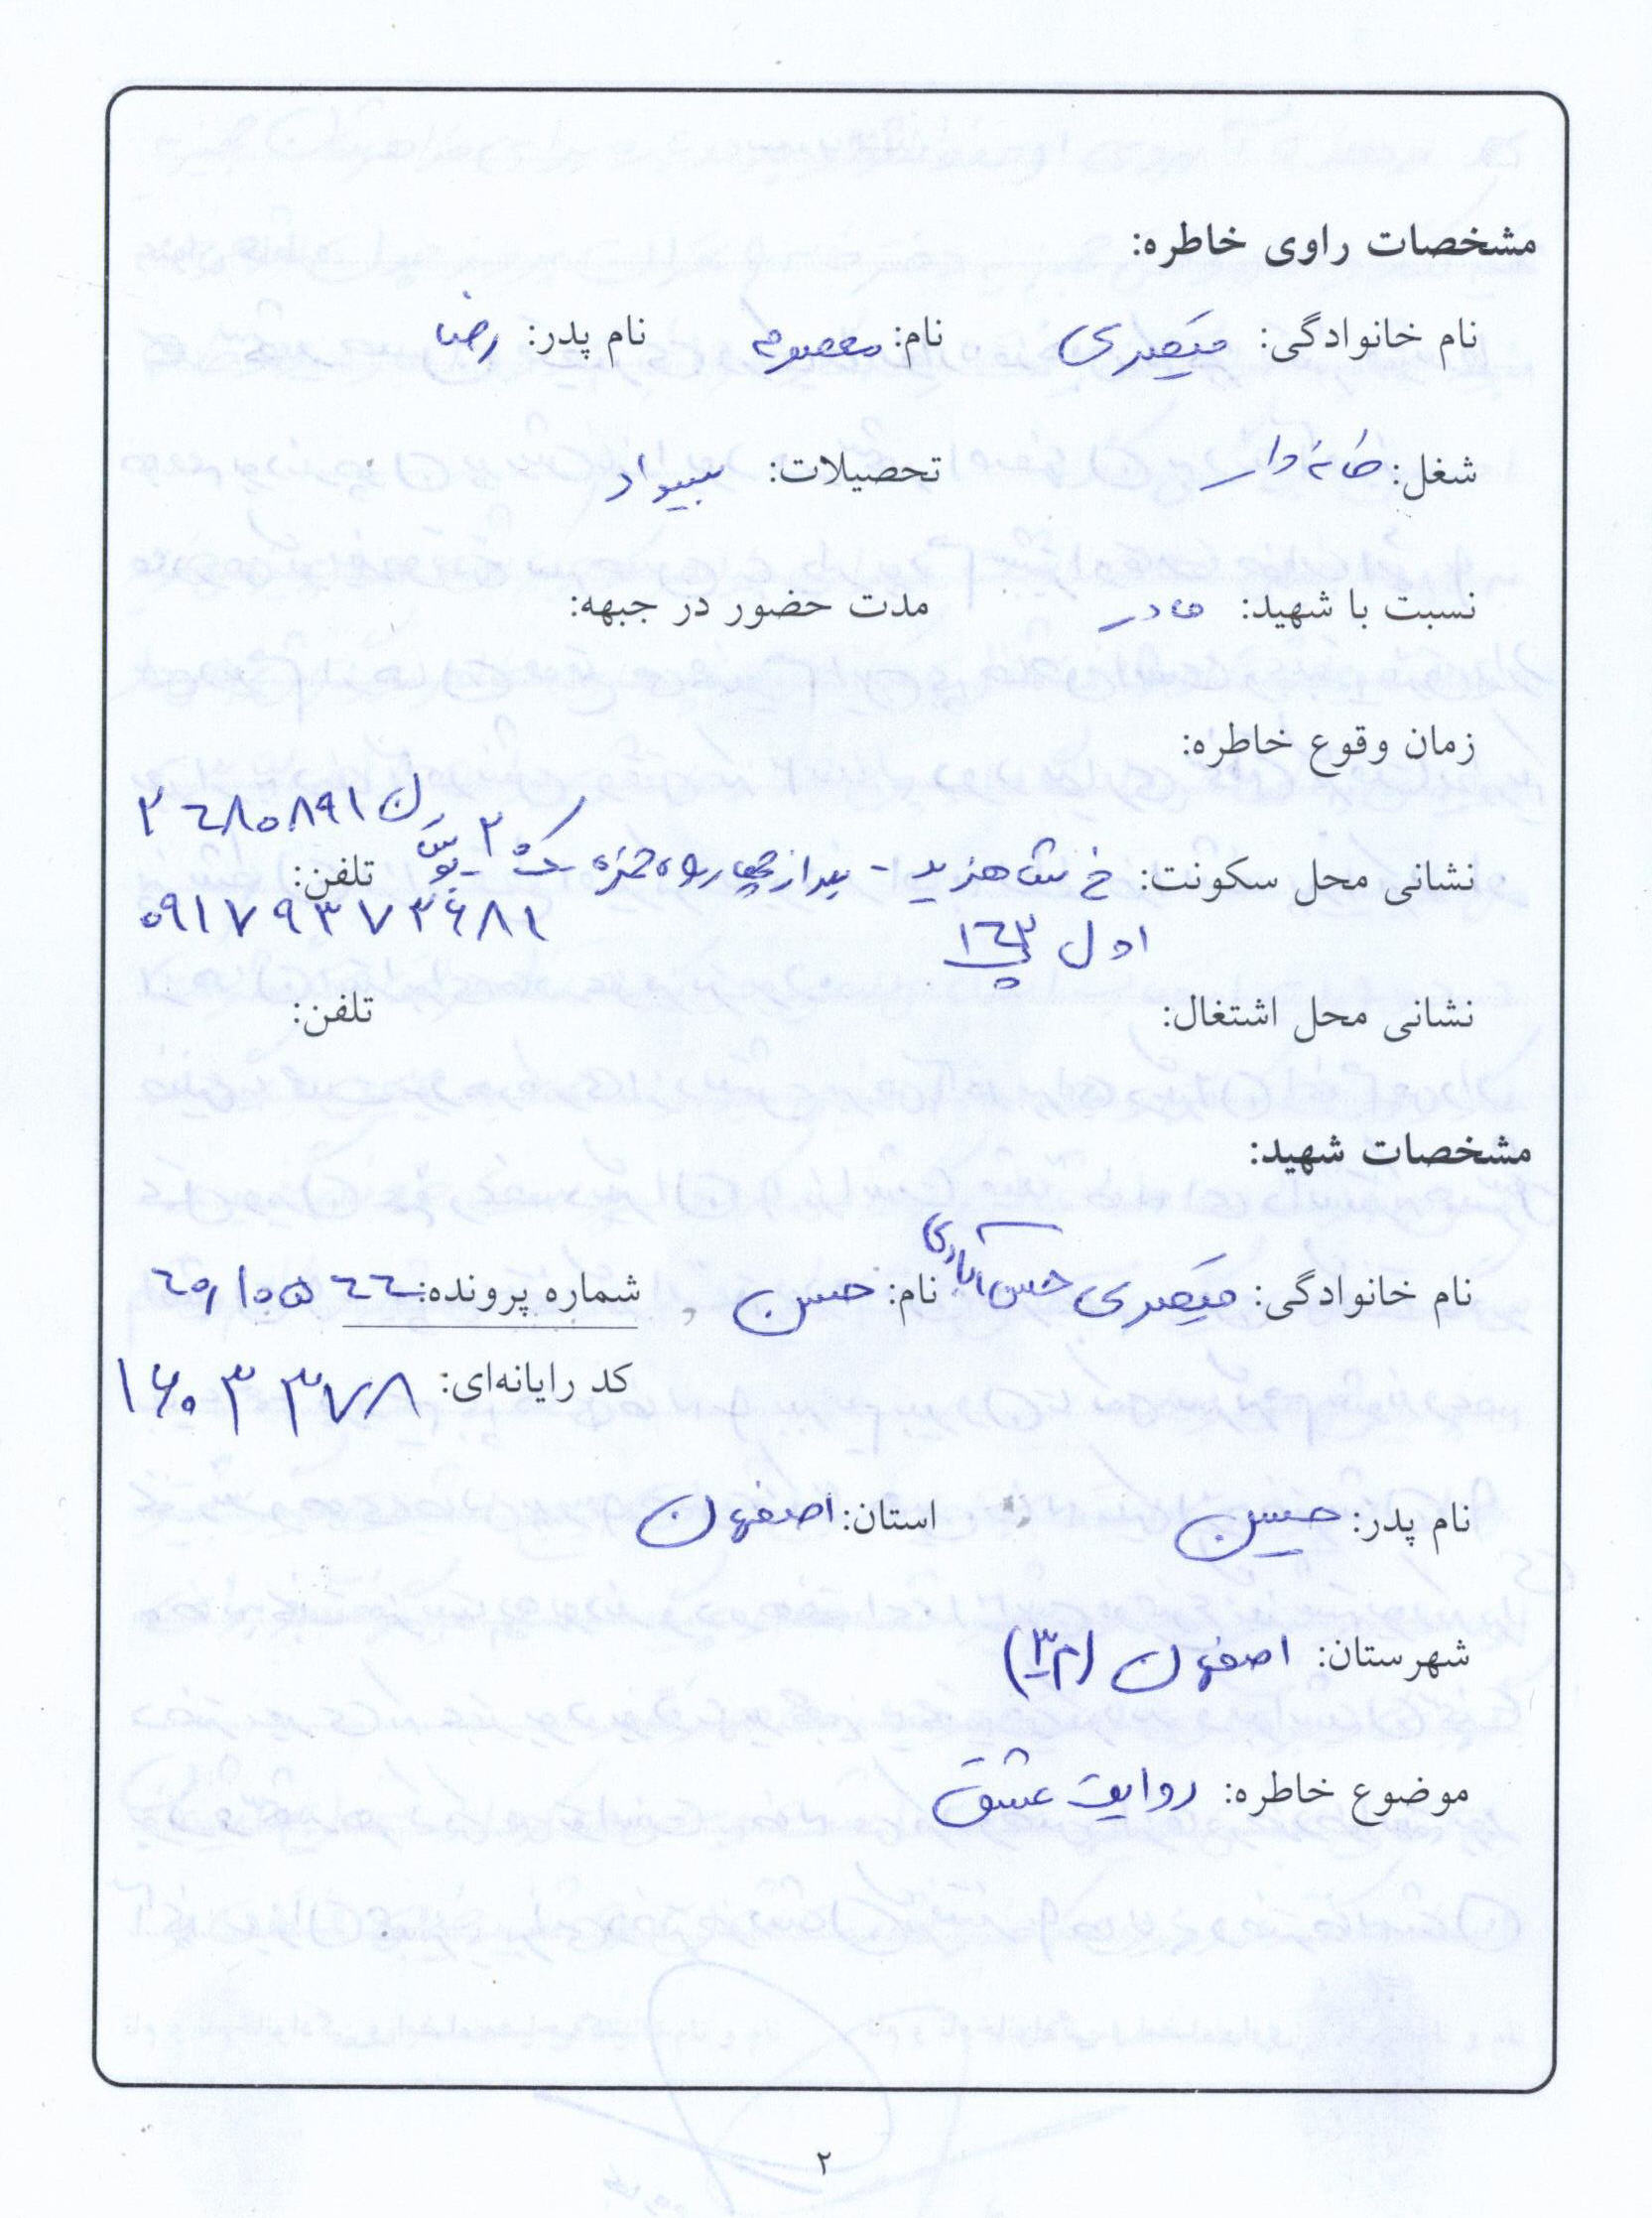 مشخصات راوی خاطره:
نام خانوادگی: قیصری نام: معصومه نام پدر: رضا
شغل: خانه دار تحصیلات: بیسواد
نسبت با شهید: مادر مدت حضور در جبهه:
زمان وقوع خاطره:
۳۴۸۰۸۹۱
نشانی محل سکونت: خ - بعد از چهارراه حمزه ک ۲ - تلفن:
اول ۱۴۳ پ ۰۹۱۷۹۳۷۲۶۸۱
نشانی محل اشتغال: تلفن:
مشخصات شهید:
نام خانوادگی: قیصری حسن آبادی نام: حسن شماره پرونده: ۴۰۱۰۵۴۴
کد رایانه‌ای: ۱۶۰۳۳۷۸
نام پدر: حسین استان: اصفهان
شهرستان: اصفهان (۳۲)
موضوع خاطره: روایت عشق
۲